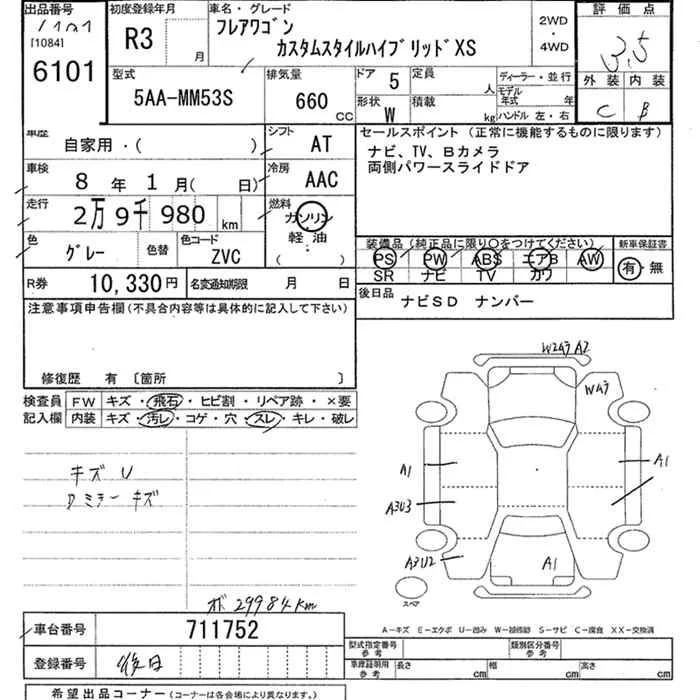 出品番号
[1084]
6101
初度登録年月
R3
月
車名・グレード
フレアワゴン
カスタムスタイルハイブリッドXS
2WD
・
4WD
評価点
3.5
外装 内装
C B
型式
5AA-MM53S
排気量
660
CC
ドア 5
定員
人
形状 W
積載
kg
ディーラー・並行
モデル年式 年
ハンドル 左・右
車歴
自家用・( )
シフト
AT
車検
8 年 1 月( 日)
冷房
AAC
走行
2万 9千 980 km
燃料
ガソリン
軽油
:
( )
色
グレー
色替
色コード
ZVC
セールスポイント (正常に機能するものに限ります)
ナビ、TV、Bカメラ
両側パワースライドドア
装備品(純正品に限り○をつけてください)
PS PW ABS エアB AW
SR ナビ TV カワ
新車保証書
有・無
R券 10,330円
名変通知期限 月 日
後日品
ナビSD ナンバー
注意事項申告欄(不具合内容等は具体的に記入して下さい)
修復歴 有 〔箇所 〕
検査員
記入欄
FW キズ・飛石・ヒビ割・リペア跡・×要
内装 キズ・汚レ・コゲ・穴・スレ・キレ・破レ
キズ U
ミラー キズ
29984km
A2
A1
A1
A3U3
A3U2
A1
スペア
A-キズ E-エクボ U-凹み W-補修跡 S-サビ C-腐食 XX-交換済
車台番号
711752
登録番号
後日
型式指定番号
参考
類別区分番号
参考
車庫証明用
参考
長さ cm
幅 cm
高さ cm
希望出品コーナー(コーナーは各会場により異なります。)